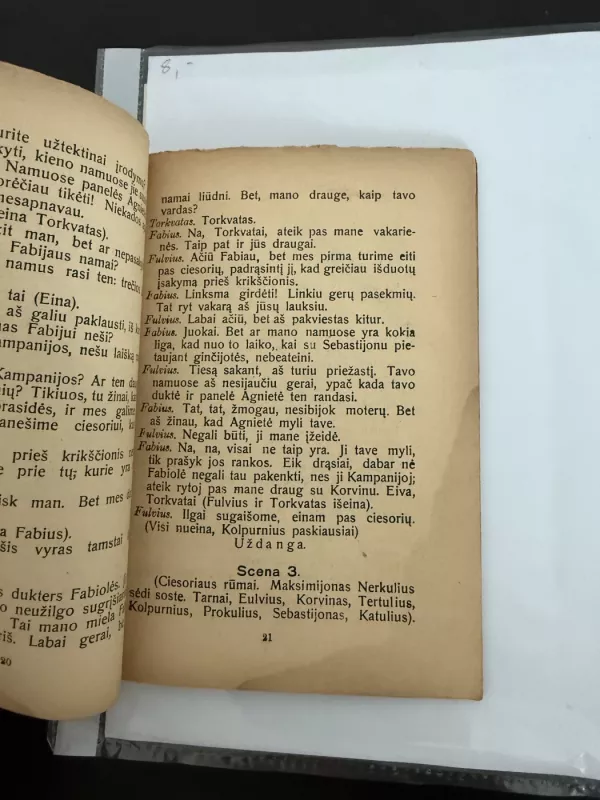 8,-
urite užtektinai įrodymų?
kyti, kieno namuose
Namuose panelės Agnie
orėčiau tikėti! Niekados
nesapnavau.
eina Torkvatas).
kit man, bet ar nepasa
Fabijaus namai?
namus rasi ten: trečin
tai (Eina).
aš galiu paklausti, iš k
nas Fabijui neši?
ampanijos, nešu laišką
Kampanijos? Ar ten da
nių? Tikiuos, tu žinai, ka
prasidės, ir mes galime
anešime ciesoriui, ka
prieš krikščionis
e prie tų; kurie yra
isk man. Bet mes
a Fabius).
šis vyras tamstai
s dukters Fabiolės.
o neužilgo sugrįšia
Tai mano miela F
riš. Labai gerai,
20
namai liūdni. Bet, mano drauge, kaip tavo
vardas?
Torkvatas. Torkvatas.
Fabius. Na, Torkvatai, ateik pas mane vakarie-
nės. Taip pat ir jūs draugai.
Fulvius. Ačiū Fabiau, bet mes pirma turime eiti
pas ciesorių, padrąsinti jį, kad greičiau išduotų
įsakymą prieš krikščionis.
Fabius. Linksma girdėti! Linkiu gerų pasekmių.
Tat ryt vakarą aš jūsų lauksiu.
Fulvius. Labai ačiū, bet aš pakviestas kitur.
Fabius. Juokai. Bet ar mano namuose yra kokia
liga, kad nuo to laiko, kai su Sebastijonu pie-
taujant ginčijotės, nebeateini.
Fulvius. Tiesą sakant, aš turiu priežastį. Tavo
namuose aš nesijaučiu gerai, ypač kada tavo
duktė ir panelė Agnietė ten randasi.
Fabius. Tat, tat, žmogau, nesibijok moterų. Bet
aš žinau, kad Agnietė myli tave.
Fulvius. Negali būti, ji mane įžeidė.
Fabius. Na, na, visai ne taip yra. Ji tave myli,
tik prašyk jos rankos. Eik drąsiai, dabar nė
Fabiolė negali tau pakenkti, nes ji Kampanijoj;
ateik rytoj pas mane draug su Korvinu. Eiva,
Torkvatai (Fulvius ir Torkvatas išeina).
Fulvius. Ilgai sugaišome, einam pas ciesorių.
(Visi nueina, Kolpurnius paskiausiai)
Uždanga.
Scena 3.
(Ciesoriaus rūmai. Maksimijonas Nerkulius
sėdi soste. Tarnai, Eulvius, Korvinas, Tertulius,
Kolpurnius, Prokulius, Sebastijonas, Katulius).
21